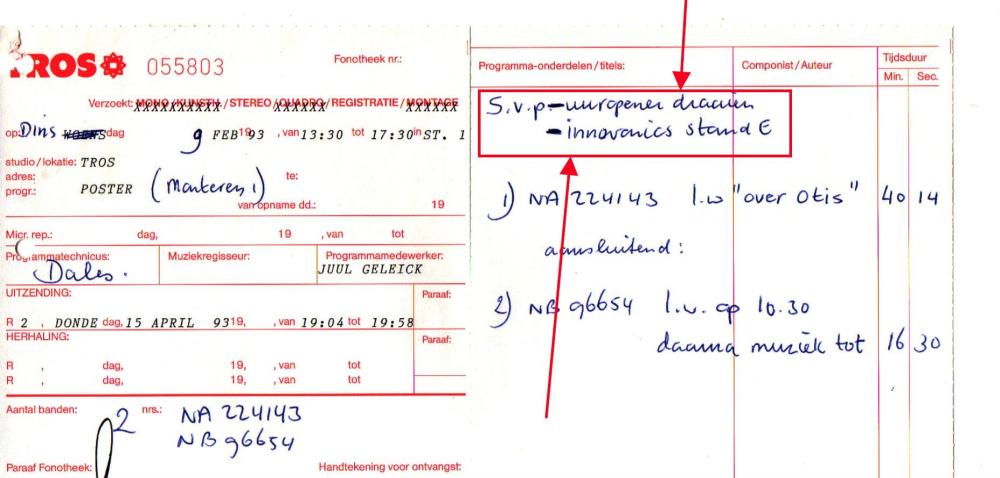 TROS 055803 Fonotheek nr.:
Verzoekt: MONO/KUNSTH/STEREO/QUADRO/REGISTRATIE/MONTAGE
op: Dins WOENSdag 9 FEB 1993 , van 13:30 tot 17:30 in ST. 1
studio/lokatie: TROS
adres: te:
progr.: POSTER (Monteren 1)
van opname dd.: 19
Micr. rep.: dag, 19 , van tot
Programmatechnicus: Muziekregisseur: Programmamedewerker:
Dales. JUUL GELEICK
UITZENDING: Paraaf:
R 2 , DONDE dag, 15 APRIL 9319, , van 19:04 tot 19:58
HERHALING: Paraaf:
R , dag, 19, , van tot
R , dag, 19, , van tot
Aantal banden: 2 nrs.: NA 224143
NB 96654
Paraaf Fonotheek: Handtekening voor ontvangst:
Programma-onderdelen/titels: Componist/Auteur Tijdsduur
Min. Sec.
S.v.p - uuropener draaien
- innovanics stand E
1) NA 224143 l.w "over Otis" 40 14
aansluitend:
2) NB 96654 l.w. op 10.30
daarna muziek tot 16 30